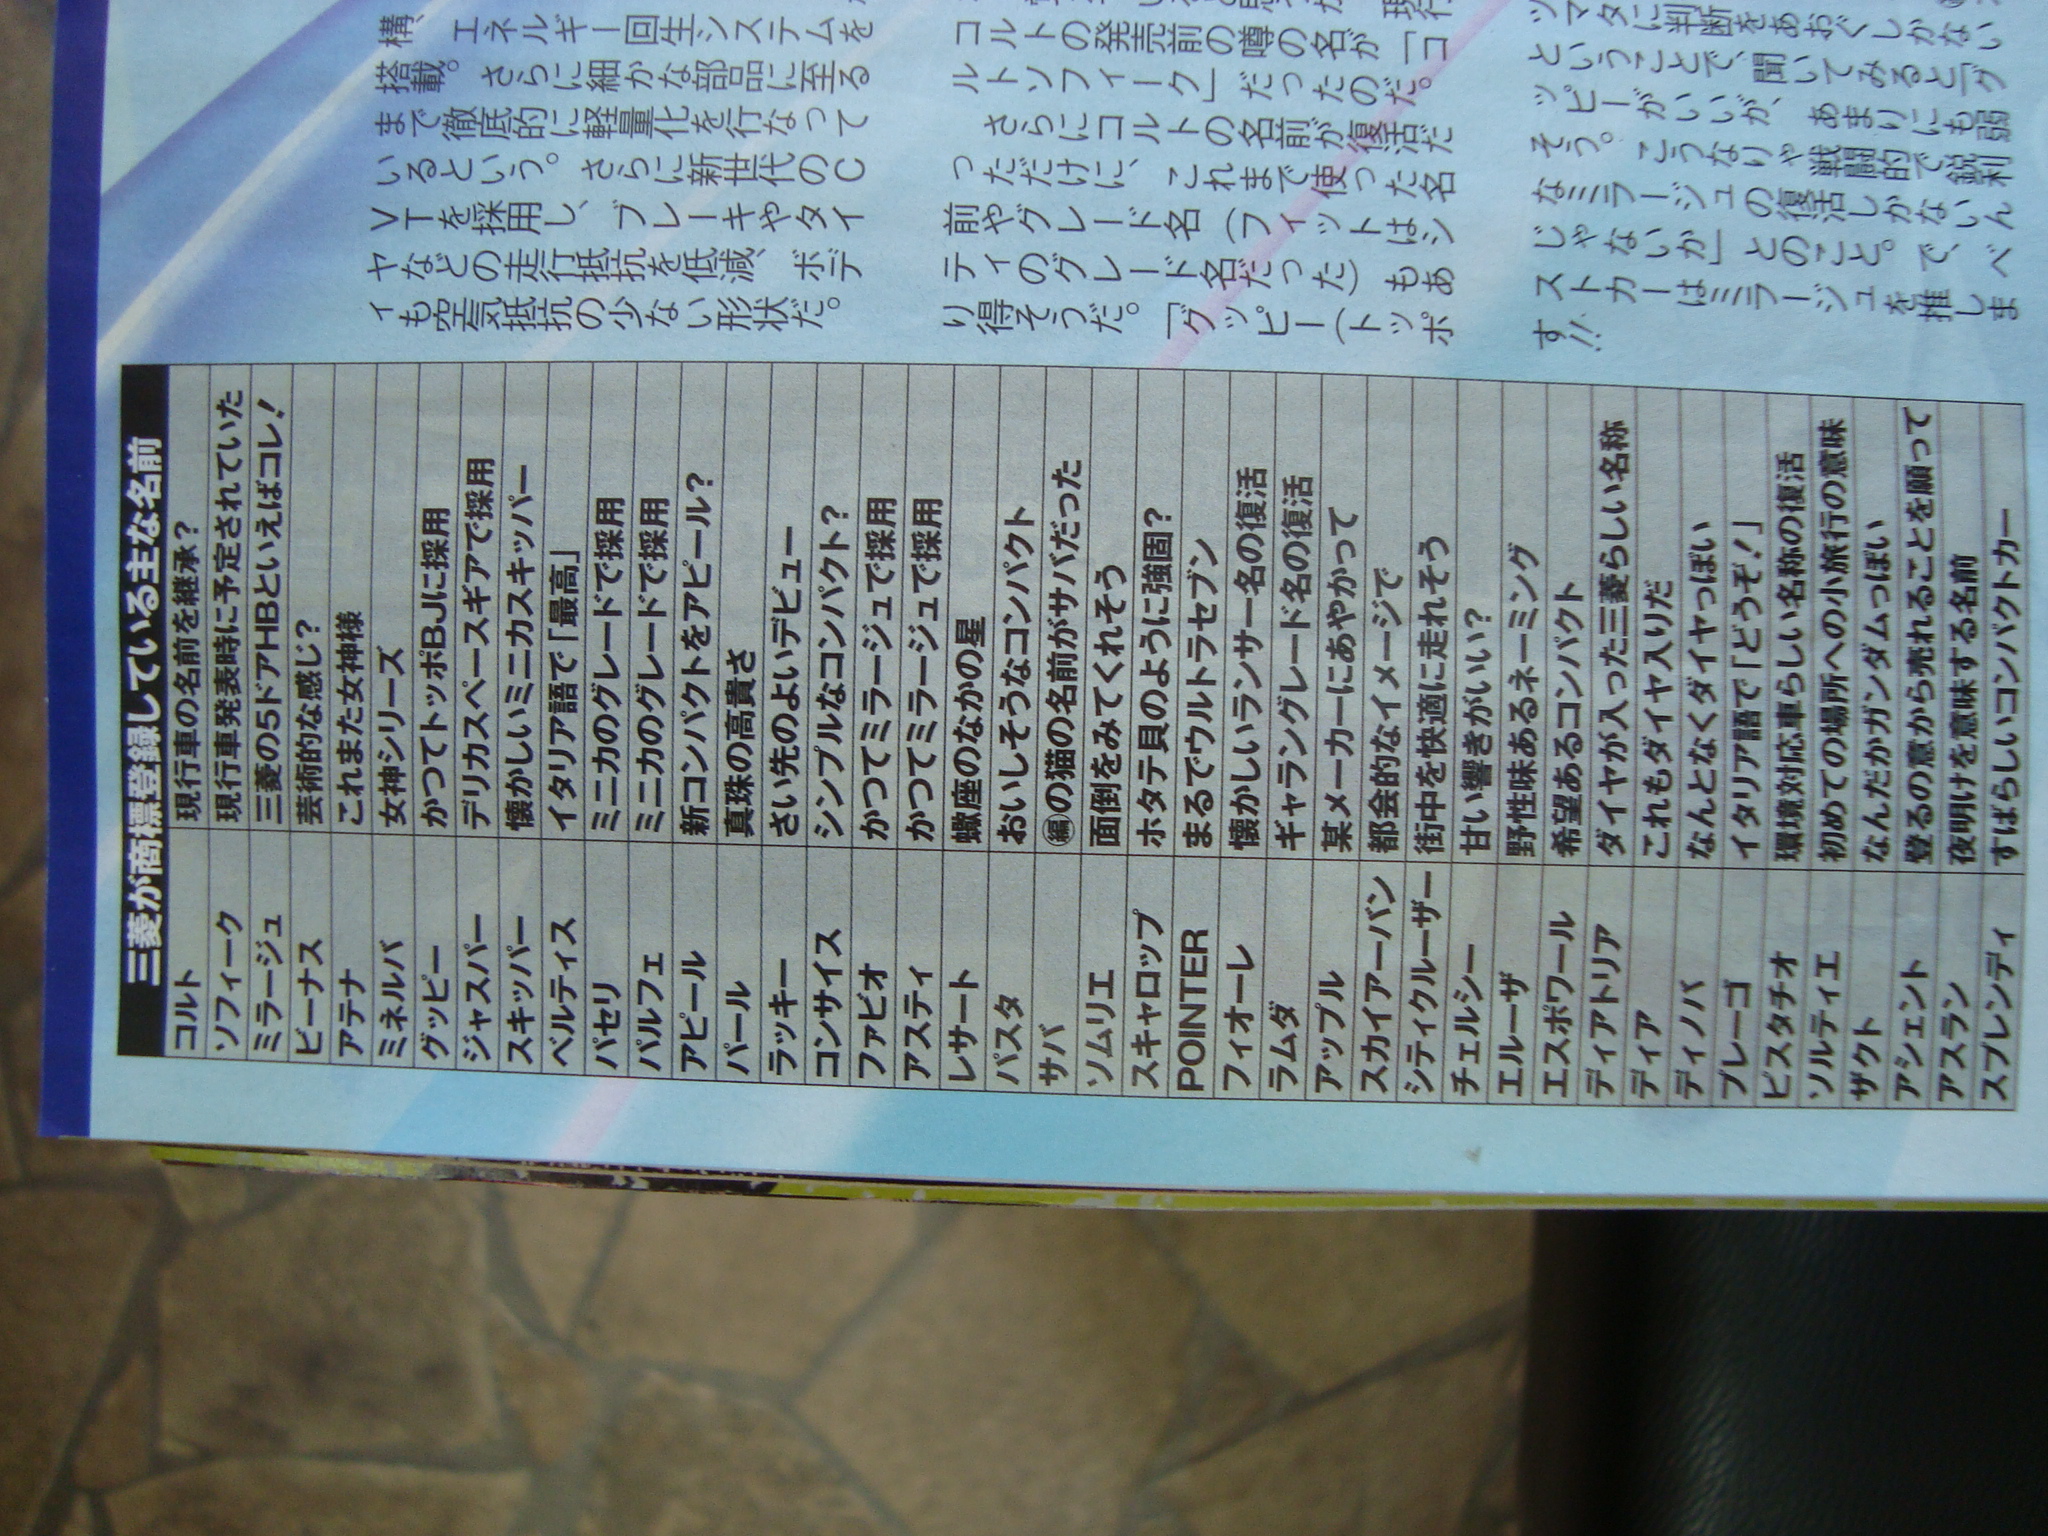 構、エネルギー回生システムを
搭載。さらに細かな部品に至る
まで徹底的に軽量化を行なって
いるという。さらに新世代のC
VTを採用し、ブレーキやタイ
ヤなどの走行抵抗を低減、ボデ
ィも空気抵抗の少ない形状だ。
現行
コルトの発売前の噂の名が「コ
ルトソフィーク」だったのだ。
さらにコルトの名前が復活だ
っただけに、これまで使った名
前やグレード名(フィットはシ
ティのグレード名だった)もあ
り得そうだ。「グッピー(トッポ
ツマタに判断をあおぐしかない
ということで、聞いてみると「グ
ッピーがいいが、あまりにも弱
そう。こうなりゃ戦闘的で鋭利
なミラージュの復活しかないん
じゃないか」とのこと。で、ベ
ストカーはミラージュを推しま
す!!
三菱が商標登録している主な名前
コルト 現行車の名前を継承?
ソフィーク 現行車発表時に予定されていた
ミラージュ 三菱の5ドアHBといえばコレ!
ビーナス 芸術的な感じ?
アテナ これまた女神様
ミネルバ 女神シリーズ
グッピー かつてトッポBJに採用
ジャスパー デリカスペースギアで採用
スキッパー 懐かしいミニカスキッパー
ベルティス イタリア語で「最高」
パセリ ミニカのグレードで採用
パルフェ ミニカのグレードで採用
アピール 新コンパクトをアピール?
パール 真珠の高貴さ
ラッキー さい先のよいデビュー
コンサイス シンプルなコンパクト?
ファビオ かつてミラージュで採用
アスティ かつてミラージュで採用
レサート 蠍座のなかの星
パスタ おいしそうなコンパクト
サバ ㊙の猫の名前がサバだった
ソムリエ 面倒をみてくれそう
スキャロップ ホタテ貝のように強固?
POINTER まるでウルトラセブン
フィオーレ 懐かしいランサー名の復活
ラムダ ギャラングレード名の復活
アップル 某メーカーにあやかって
スカイアーバン 都会的なイメージで
シティクルーザー 街中を快適に走れそう
チェルシー 甘い響きがいい?
エルーザ 野性味あるネーミング
エスポワール 希望あるコンパクト
ディアトリア ダイヤが入った三菱らしい名称
ディア これもダイヤ入りだ
ディノバ なんとなくダイヤっぽい
プレーゴ イタリア語で「どうぞ!」
ビスタチオ 環境対応車らしい名称の復活
ソルティエ 初めての場所への小旅行の意味
ザクト なんだかガンダムっぽい
アシェント 登るの意から売れることを願って
アスラン 夜明けを意味する名前
スプレンディ すばらしいコンパクトカー